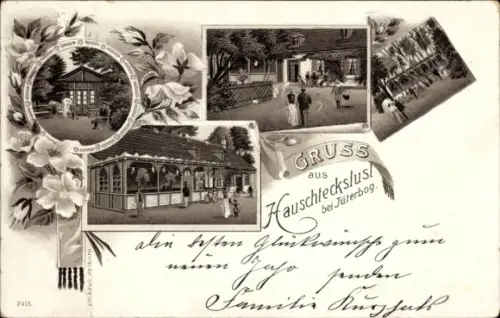 GRUSS
aus
Hauschteckslust
bei Jüterbog.
Die besten Glückwünsche zum
neuen Jahr senden
Familie
2451.